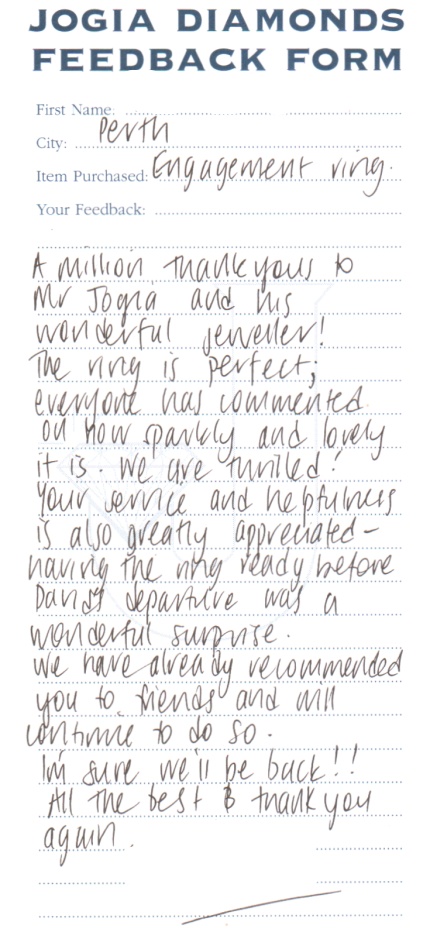 JOGIA DIAMONDS
FEEDBACK FORM
First Name:
City: Perth
Item Purchased: Engagement ring.
Your Feedback:
A million thank yous to
Mr Jogia and his
wonderful jeweller!
The ring is perfect;
everyone has commented
on how sparkly and lovely
it is. We are thrilled!
Your service and helpfulness
is also greatly appreciated -
having the ring ready before
departure was a
wonderful surprise.
We have already recommended
you to friends and will
continue to do so.
I'm sure we'll be back!!
All the best & thank you
again.